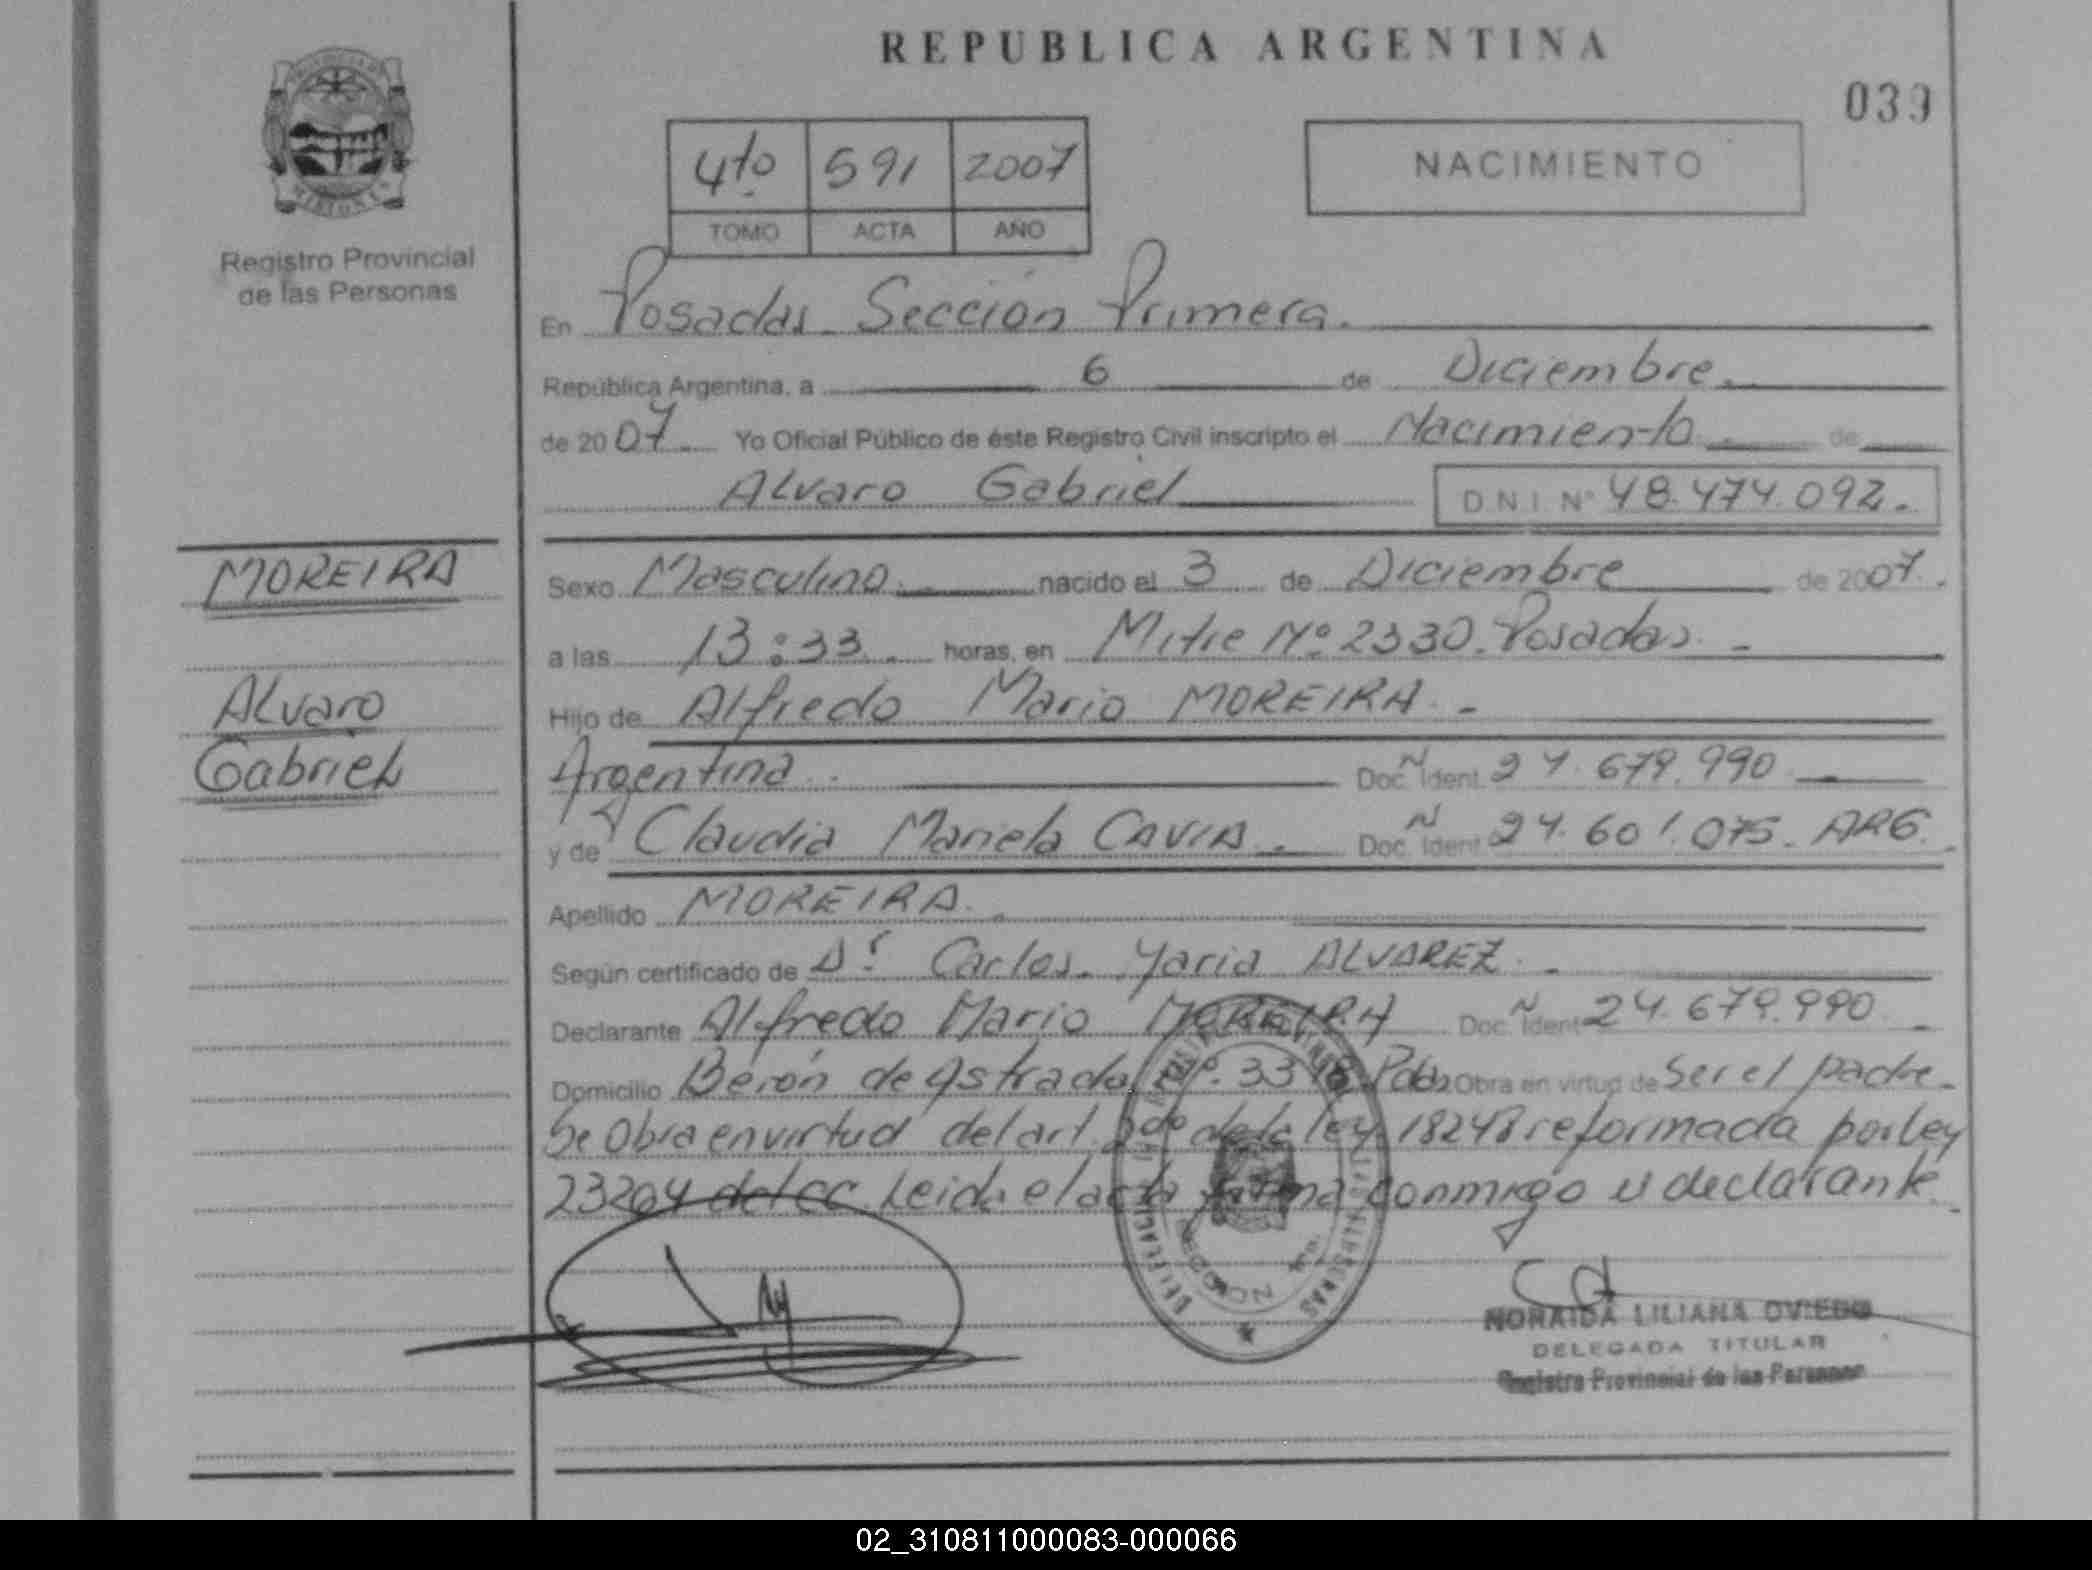 REPUBLICA ARGENTINA
039
4to 591 2007
TOMO ACTA AÑO
NACIMIENTO
MISIONES
Registro Provincial
de las Personas
En Posadas Sección Primera.
República Argentina, a 6 de Diciembre
de 2007 Yo Oficial Público de éste Registro Civil inscripto el Nacimiento de
Alvaro Gabriel D N I Nº 48.474.092.
MOREIRA
Alvaro
Gabriel
Sexo Masculino nacido el 3 de Diciembre de 2007.
a las 13:33 horas, en Mitre Nº 2330. Posadas. -
Hijo de Alfredo Mario MOREIRA. -
Argentina. Doc. Ident. 24.679.990
y de Claudia Mariela CAVIA. Doc. Ident. 24.601.075. ARG.
Apellido MOREIRA.
Según certificado de Dr. Carlos ALVAREZ. -
Declarante Alfredo Mario MOREIRA Doc. Ident 24.679.990 -
Domicilio Berón de Astrada Nº. Pdas Obra en virtud de Ser el padre.
Se Obra en virtud del art. de la ley 18248 reformada por ley
23264 del CC. Leida el acta firma conmigo el declarante.
NORAIDA LILIANA OVIEDO
DELEGADA TITULAR
Registro Provincial de las Personas
02_310811000083-000066